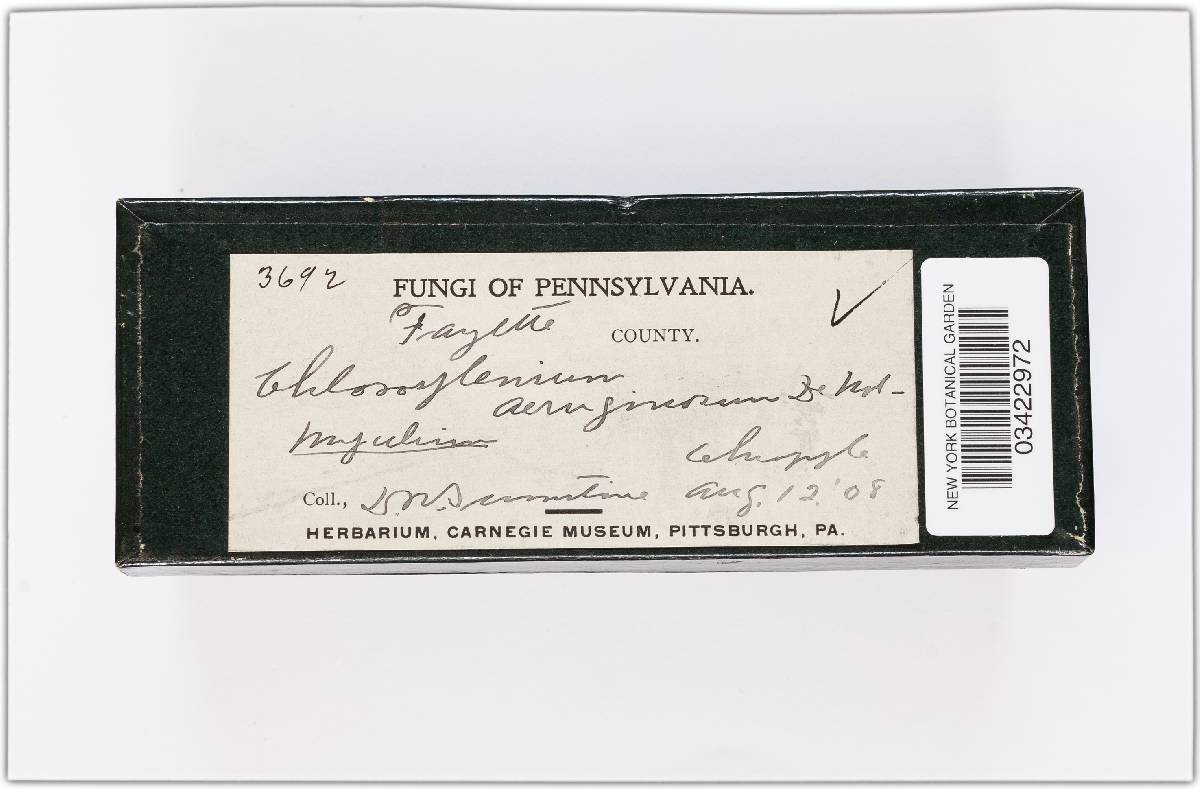 3692
FUNGI OF PENNSYLVANIA.
Fayette COUNTY.
Chlorosplenium
aeruginosum De Not-
mycelium
Coll., D.R. Sumstine Aug. 12 '08
HERBARIUM, CARNEGIE MUSEUM, PITTSBURGH, PA.
NEW YORK BOTANICAL GARDEN
03422972